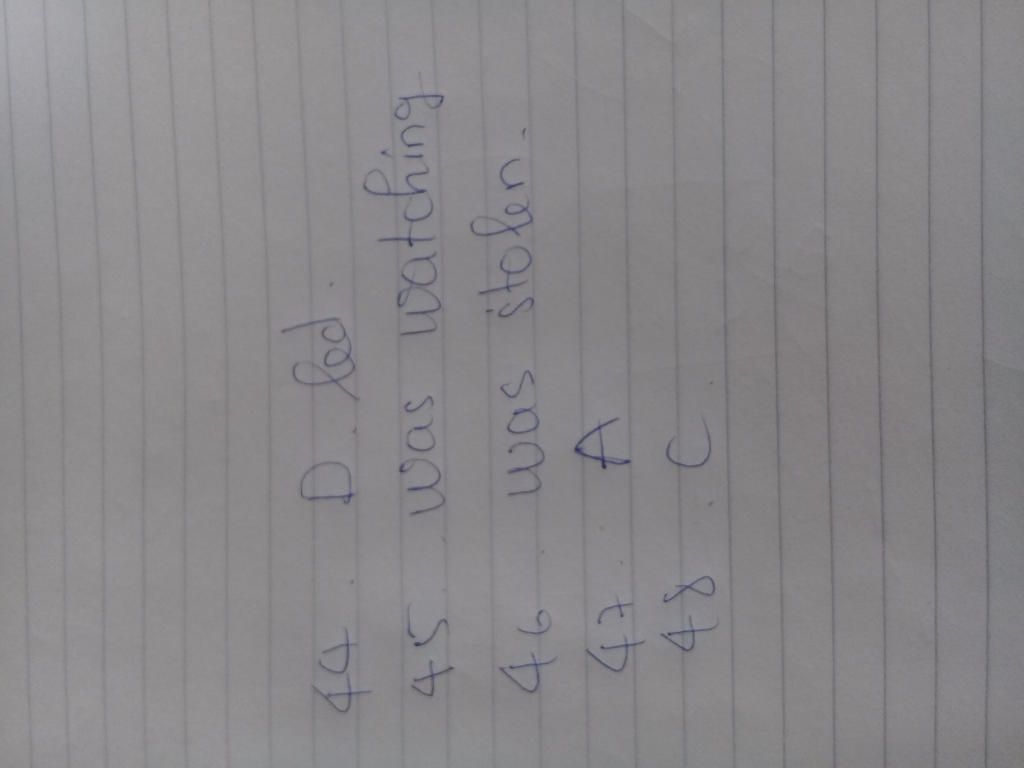 44. D led.
45. was watching
46. was stolen.
47. A
48. C